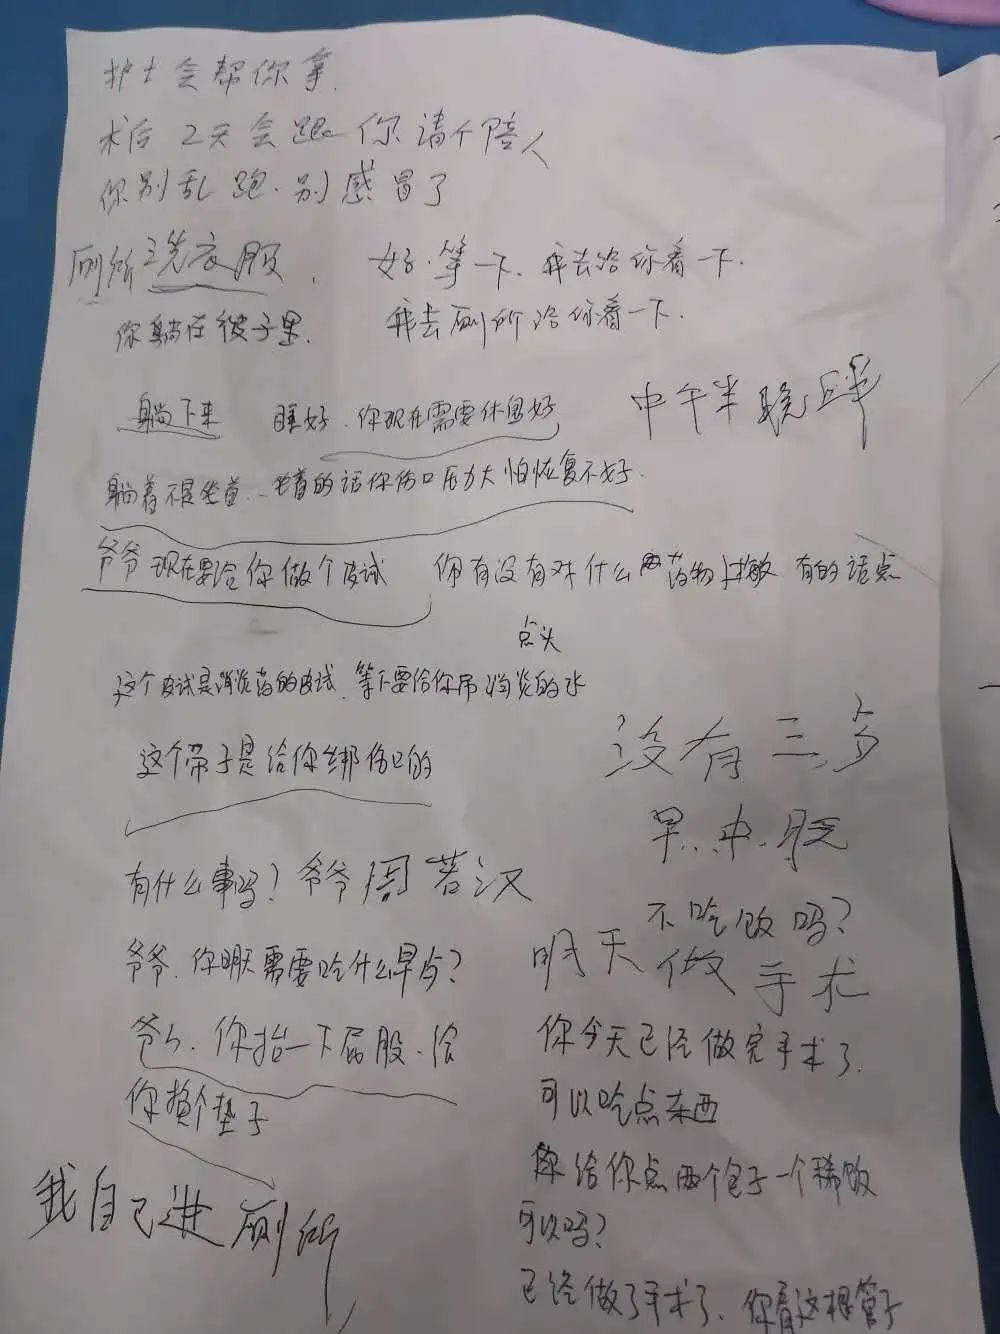 护士会帮你拿.
术后 2天会跟你请个陪人
你别乱跑.别感冒了
厕所洗衣服.
好.等一下.我去给你看一下.
你躺在被子里.
我去厕所给你看一下.
躺下来 睡好.你现在需要休息好
中午半晚
躺着不是坐着.坐着的话你伤口压力大怕恢复不好.
爷爷现在要给你做个皮试 你有没有对什么药物过敏 有的话点
点头
这个皮试是消炎药的皮试.等下要给你吊消炎的水
这个带子是给你绑伤口的
没有三
早.中.晚
有什么事吗?爷爷周若汉
不吃饭吗?
爷爷.你明天需要吃什么早
明天做手术
爷爷.你抬一下屁股.给
你换个垫子
你今天已经做完手术了.
可以吃点东西
给你点两个包子一个稀饭
可以吗?
我自己进厕所
已经做了手术了.你看这根管子